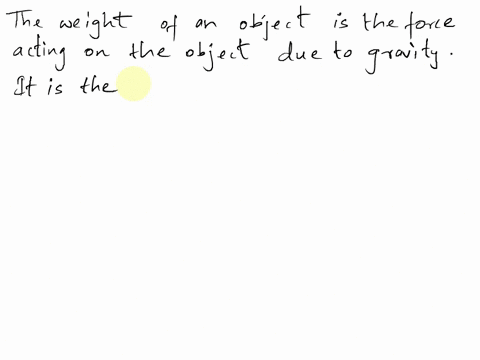 The weight of an object is the force
acting on the object due to gravity.
It is the